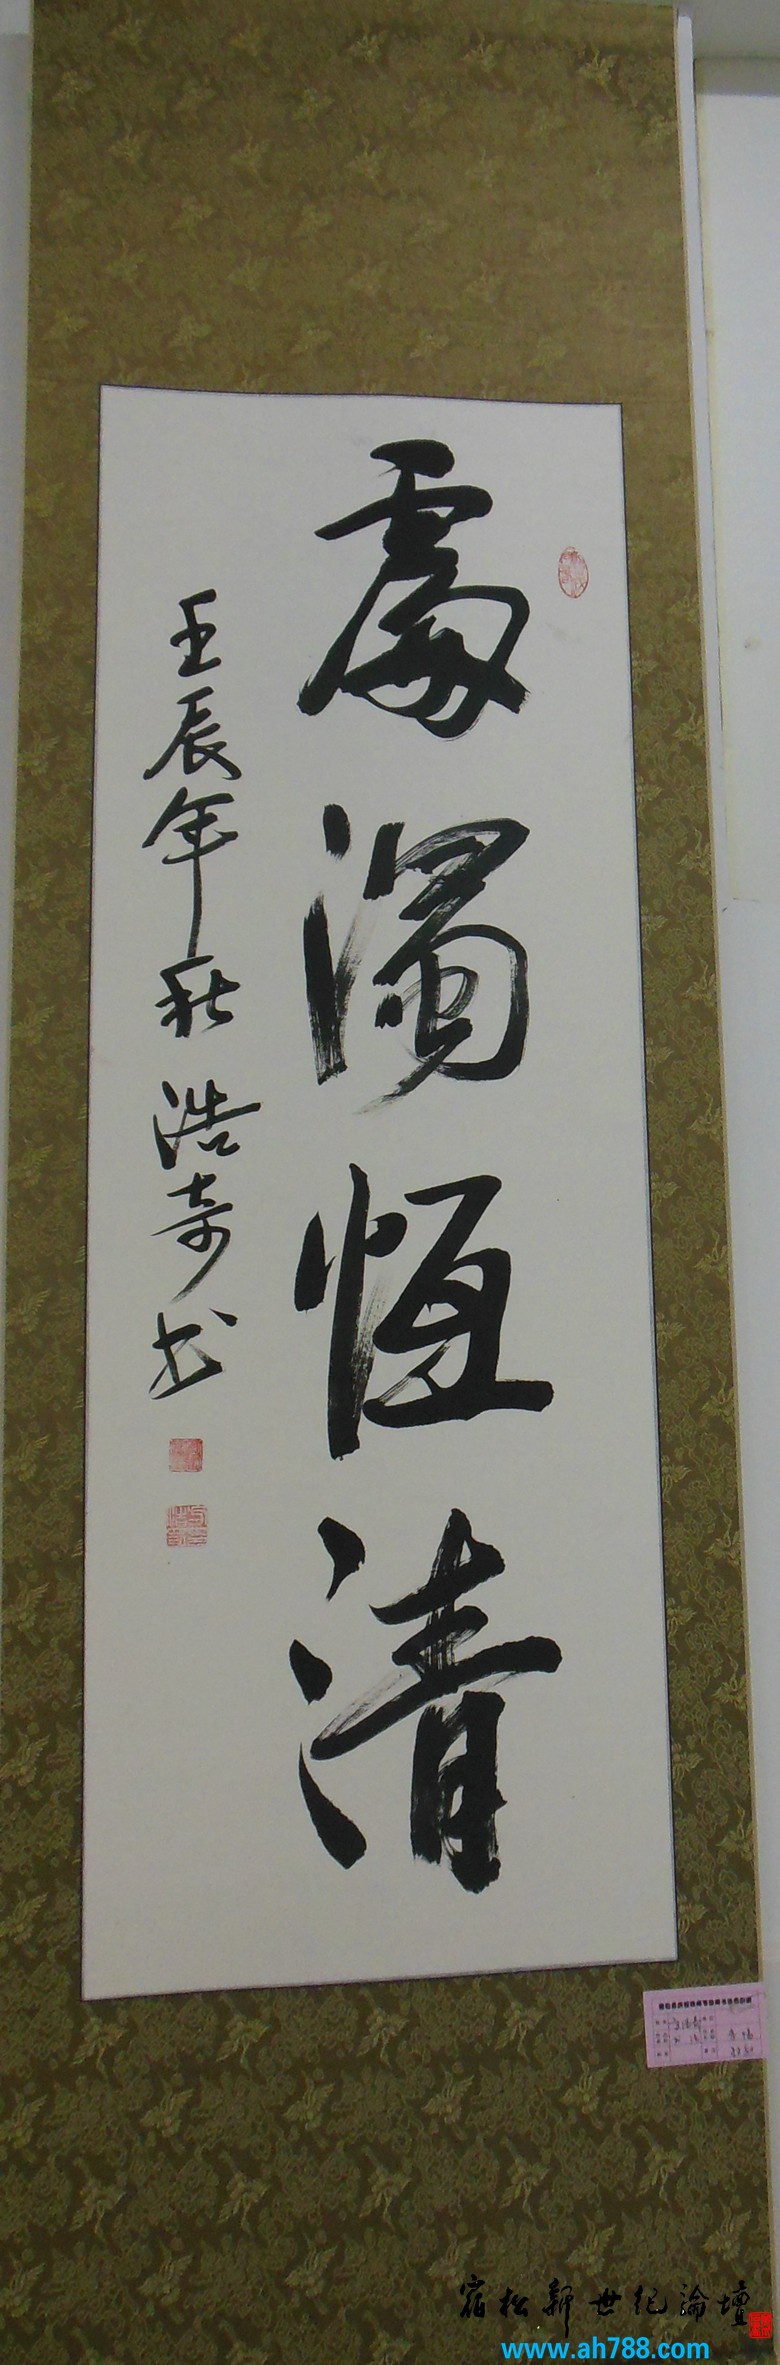 處濁恆清
壬辰年秋浩奇书
宿松新世纪論壇
www.ah788.com